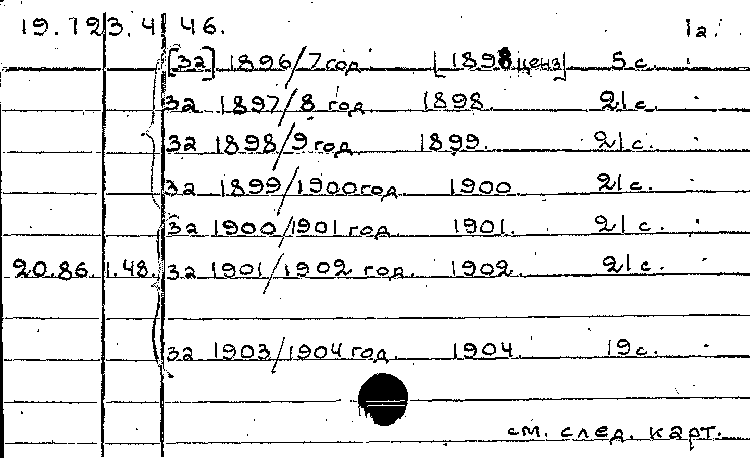 19.123.4.46. 1а.
[за] 1896/7 год [1898 ценз] 5 с.
за 1897/8 год 1898. 21 с.
за 1898/9 год. 1899. 21 с.
за 1899/1900 год. 1900. 21 с.
за 1900/1901 год. 1901. 21 с.
20.86.1.48. за 1901/1902 год. 1902. 21 с.
за 1903/1904 год. 1904. 19 с.
см. след. карт.